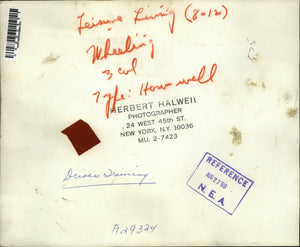 Leisure Living (8-12)
Wheeling
3 col
Type: Howewell
HERBERT HALWEIL
PHOTOGRAPHER
24 WEST 45th ST.
NEW YORK, N.Y. 10036
MU. 2-7423
REFERENCE
N. E. A.
A29324